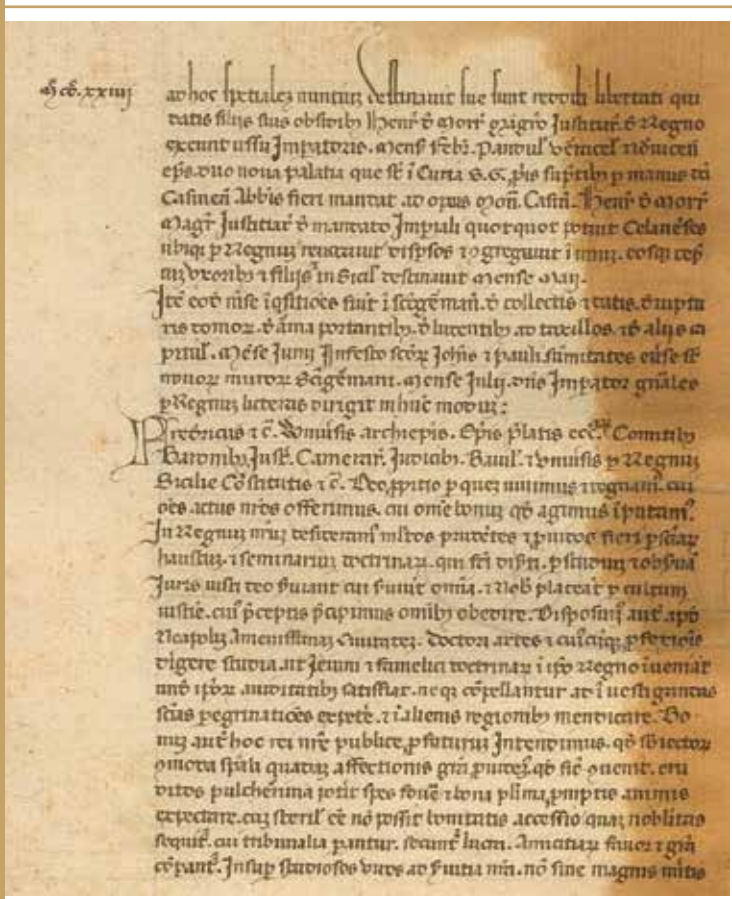 M.cc.xxiiij
ad hoc spetialez nuntiuz destinauit sue sunt redditi libertati qui
datis filijs suis obsidibus Henr̄ de Morr̄ magr̄o Justitiar̄. de Regno
exeunt iussu Impatoris. Mens̄ febr̄. Pandul
ep̄s. duo noua palatia que st̄ ī Curia S.G. p manus
Casinen̄ Abb̄is fieri mandat ad opus Mon̄. Casin̄. Henr̄ de Morr̄
Magr̄ Justitiar̄ de mandato Imp̄iali quotquot potuit Celanēses
ubiq p Regnuz dispsos ī unuz. eosq
uxoribꝫ ⁊ filijs in Sicil̄ destinauit Mense Maij.
Itē eodē mēse īqsitiōes fiūt ī Scōgēmañ. de collectis ⁊ datis. de ruptu
ris domoꝝ. de ludentibꝫ ad taxillos. ⁊ de alijs ca
pitul̄. Mēse Junij In festo scōꝝ Joh̄is ⁊ pauli sūmitates st̄
muroꝝ Scīgēmani. Mense Julij. dn̄s Impator gn̄ales
p Regnuz licteras dirigit in hūc moduz:
Fredericus ⁊ c̄. Vniuīsis archiepīs. Epīs p̄latis ecc̄. Comitibꝫ
Baronibꝫ. Just̄. Camerar̄. Judicibꝫ. Baiul̄. ⁊ vniuīsis p Regnuz
Sicilie Cōstitutis ⁊ c̄. Deo ppitio p quez uiuimus ⁊ regnam̄. cui
oēs actus nr̄os offerimus. cui om̄e bonuz qd̄ agimus īputam̄.
In Regnuz nr̄uz desideram̄ ml̄tos prudētes ⁊ puidos fieri p sciāꝝ
haustuz. ⁊ seminariuz doctrinaꝝ. qui p studiuz ⁊ obs̄uā
Juris iusti deo s̄uiant cui s̄uiūt om̄ia. ⁊ Nob̄ placeāt p cultuꝫ
iustitīe. cuī p̄ceptis p̄cipimus omībꝫ obedire. Disposuim̄ aut̄ apd̄
Neapoliz Amenissimaz Ciuitatez. doceri artes ⁊ cuiꝰcūq pfexiōis
uigere studia. ut Jeiuni ⁊ famelici doctrinaꝝ ī ip̄o Regno īueniāt
und̄ ip̄oꝝ auiditatibꝫ satisfiat. neq cōpellantur ad īuestigandas
sciās pegrinatiōes expetē. ⁊ ī alienis regionibꝫ mendicare. Bo
nuz aut̄ hoc rei nr̄e publice pfuturuz Intendimus. qd̄ sb̄iectoꝝ
ɔmoda sp̄ali quadaz affectionis grā puidez. qd̄ sic̄ ɔuenit. eru
ditos pulcherrima potīt spes fouē ⁊ bona pl̄ima pmptis animis
expectare. cuz steril̄ eē nō possit bonitatis accessio quaz nobilitas
sequit̄. cui tribunalia pantur. secunt̄ lucra. Amicitiaꝝ fauor ⁊ grā
cōpant̄. Insup studiosos viros ad s̄uitia nr̄a. nō sine magnis mītis